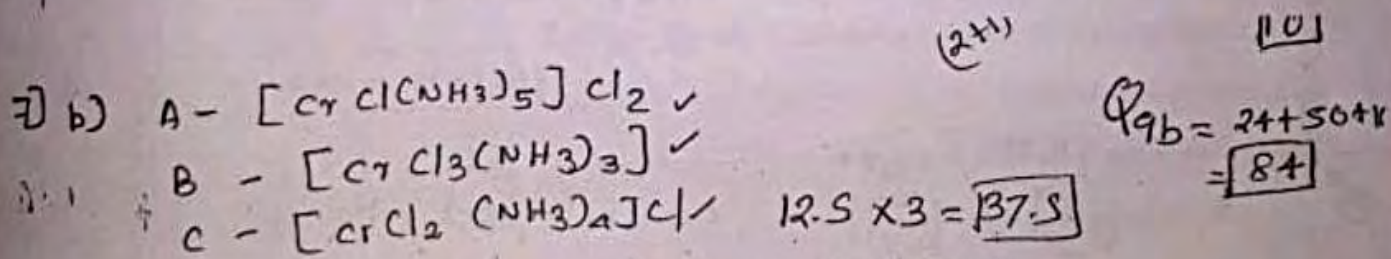 (2+1)
10
7) b) A - [Cr Cl(NH3)5] Cl2 ✓
B - [Cr Cl3 (NH3)3] ✓
C - [Cr Cl2 (NH3)4] Cl ✓ 12.5 x 3 = 37.5
Q9b = 24+50+
= 84